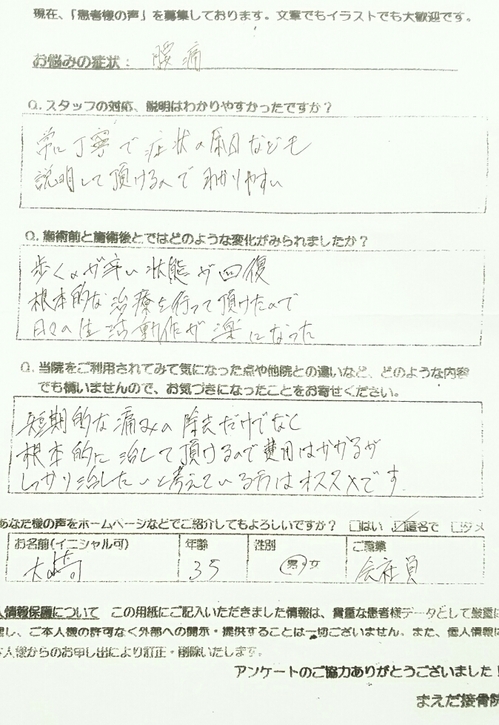 現在、「患者様の声」を募集しております。文章でもイラストでも大歓迎です。
お悩みの症状: 腰痛
Q. スタッフの対応、説明はわかりやすかったですか?
常に丁寧で症状の原因なども
説明して頂けるので わかりやすい
Q. 施術前と施術後とではどのような変化がみられましたか?
歩くのが辛い状態が回復
根本的な治療を行って頂けたので
日々の生活動作が楽になった
Q. 当院をご利用されてみて気になった点や他院との違いなど、どのような内容
でも構いませんので、お気づきになったことをお寄せください。
短期的な痛みの除去だけでなく
根本的に治して頂けるので費用はかかるが
しっかり治したいと考えている方はオススメです
あなた様の声をホームページなどでご紹介してもよろしいですか? □はい ☑匿名で □ダメ
お名前(イニシャル可) 年齢 性別 ご職業
35 男・女 会社員
人情報保護について この用紙にご記入いただきました情報は、貴重な患者様データとして厳重に
理し、ご本人様の許可なく外部への開示・提供することは一切ございません。また、個人情報は
本人様からのお申し出により訂正・削除いたします。
アンケートのご協力ありがとうございました!
まえだ接骨院